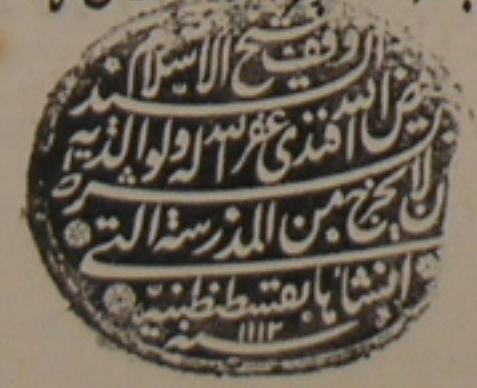 وقف شيخ الاسلام
السيد
فيض الله افندى غفر الله له ولوالديه
بشرط
ان لا يخرج من المدرسة التي
انشأها بقسطنطنية
سنه ١١١٢